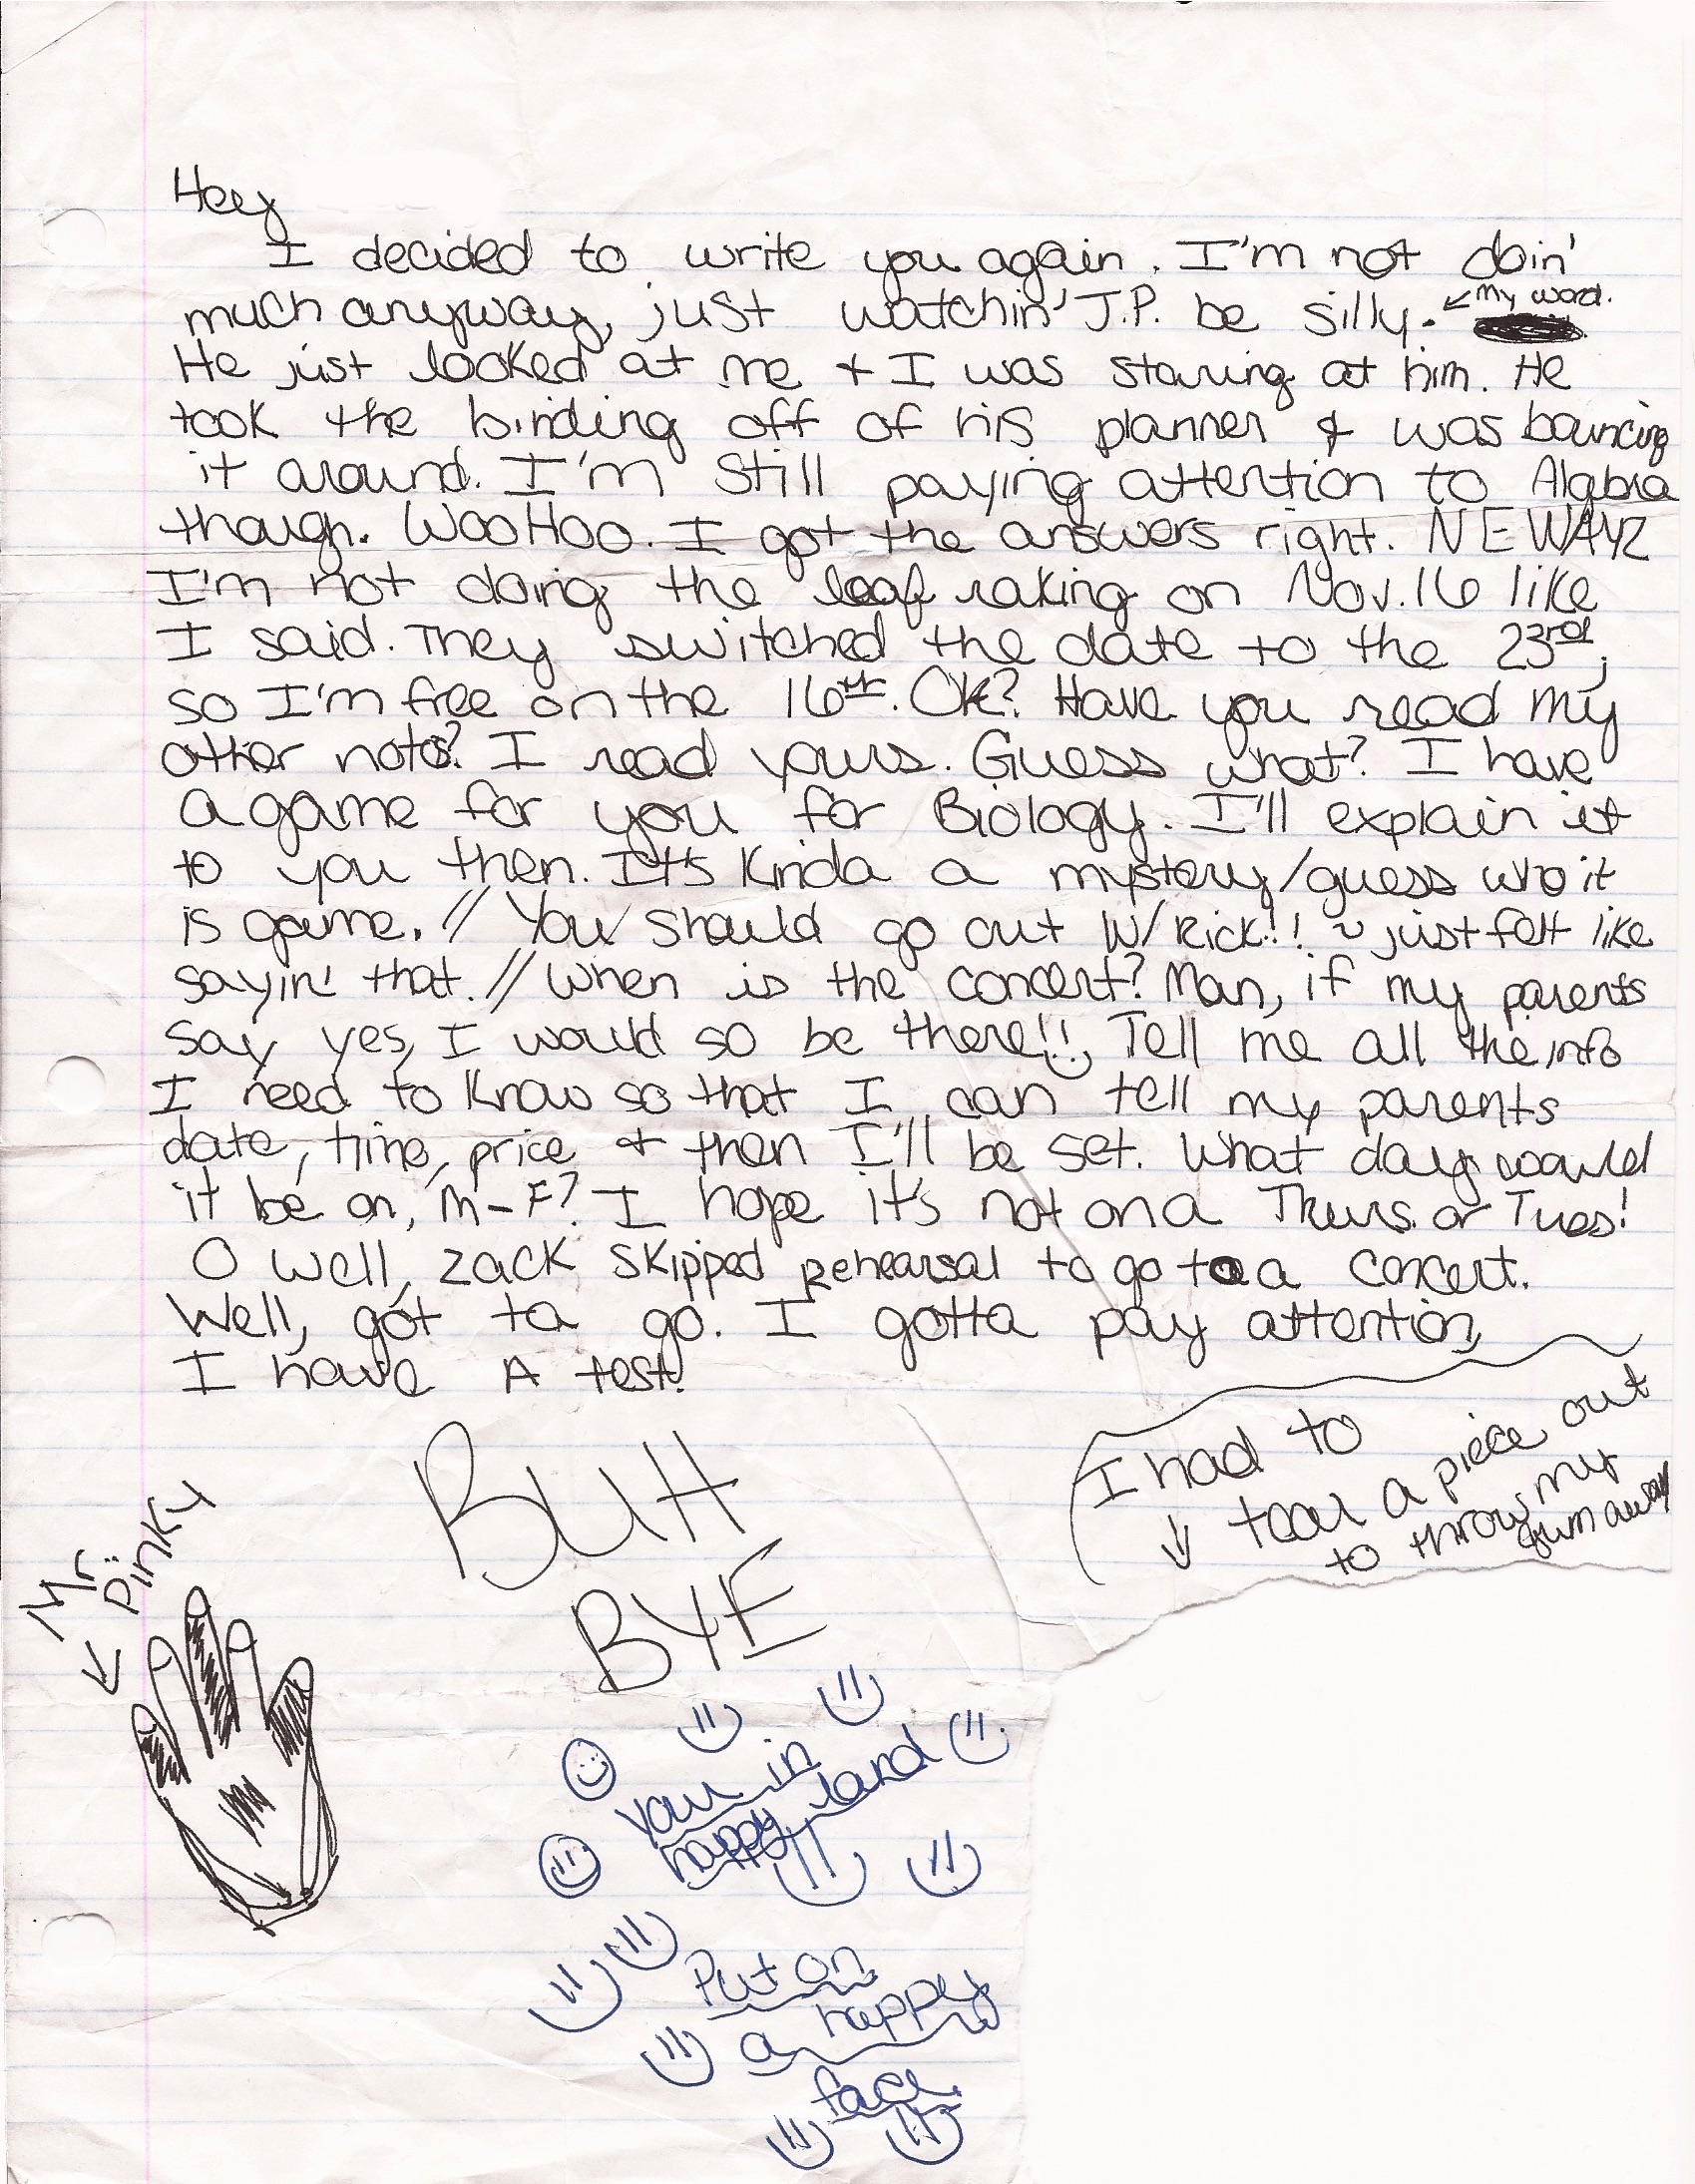 Hey
I decided to write you again. I'm not doin'
much anyway, just watchin' J.P. be silly. ← My word.
He just looked at me + I was staring at him. He
took the binding off of his planner & was bouncing
it around. I'm still paying attention to Algbra
though. WooHoo. I got the answers right. NEWAYZ
I'm not doing the leaf raking on Nov. 16 like
I said. They switched the date to the 23rd,
so I'm free on the 16th. Ok? Have you read my
other note? I read yours. Guess what? I have
a game for you for Biology. I'll explain it
to you then. It's kinda a mystery/guess who it
is game. // You should go out w/ Rick!! ~ just felt like
sayin' that. // When is the concert? Man, if my parents
say yes, I would so be there!! Tell me all the info
I need to know so that I can tell my parents
date, time, price + then I'll be set. What day would
it be on, M-F? I hope it's not on a Thurs. or Tues!
O well, zack skipped rehearsal to go to a concert.
Well, got ta go. I gotta pay attention,
I have A test!
I had to
↓ tear a piece out
to throw my
gum away
BUH
BYE
Mr.
Pinky
←
your in
happy land
Put on
a happy
face